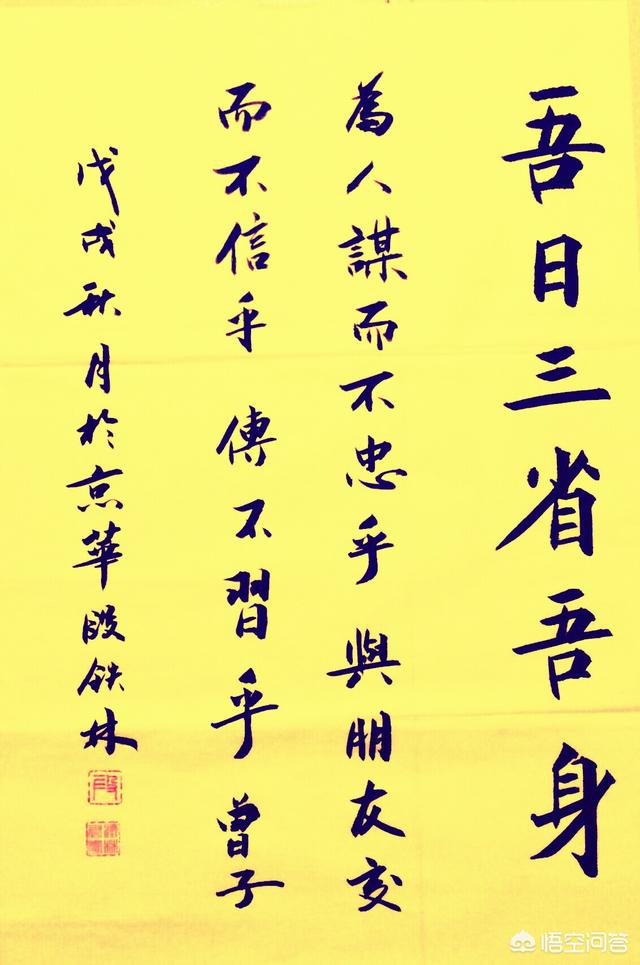 吾日三省吾身
為人謀而不忠乎 與朋友交
而不信乎 傳不習乎 曾子
戊戌秋月於京華段鉄林
段
悟空问答